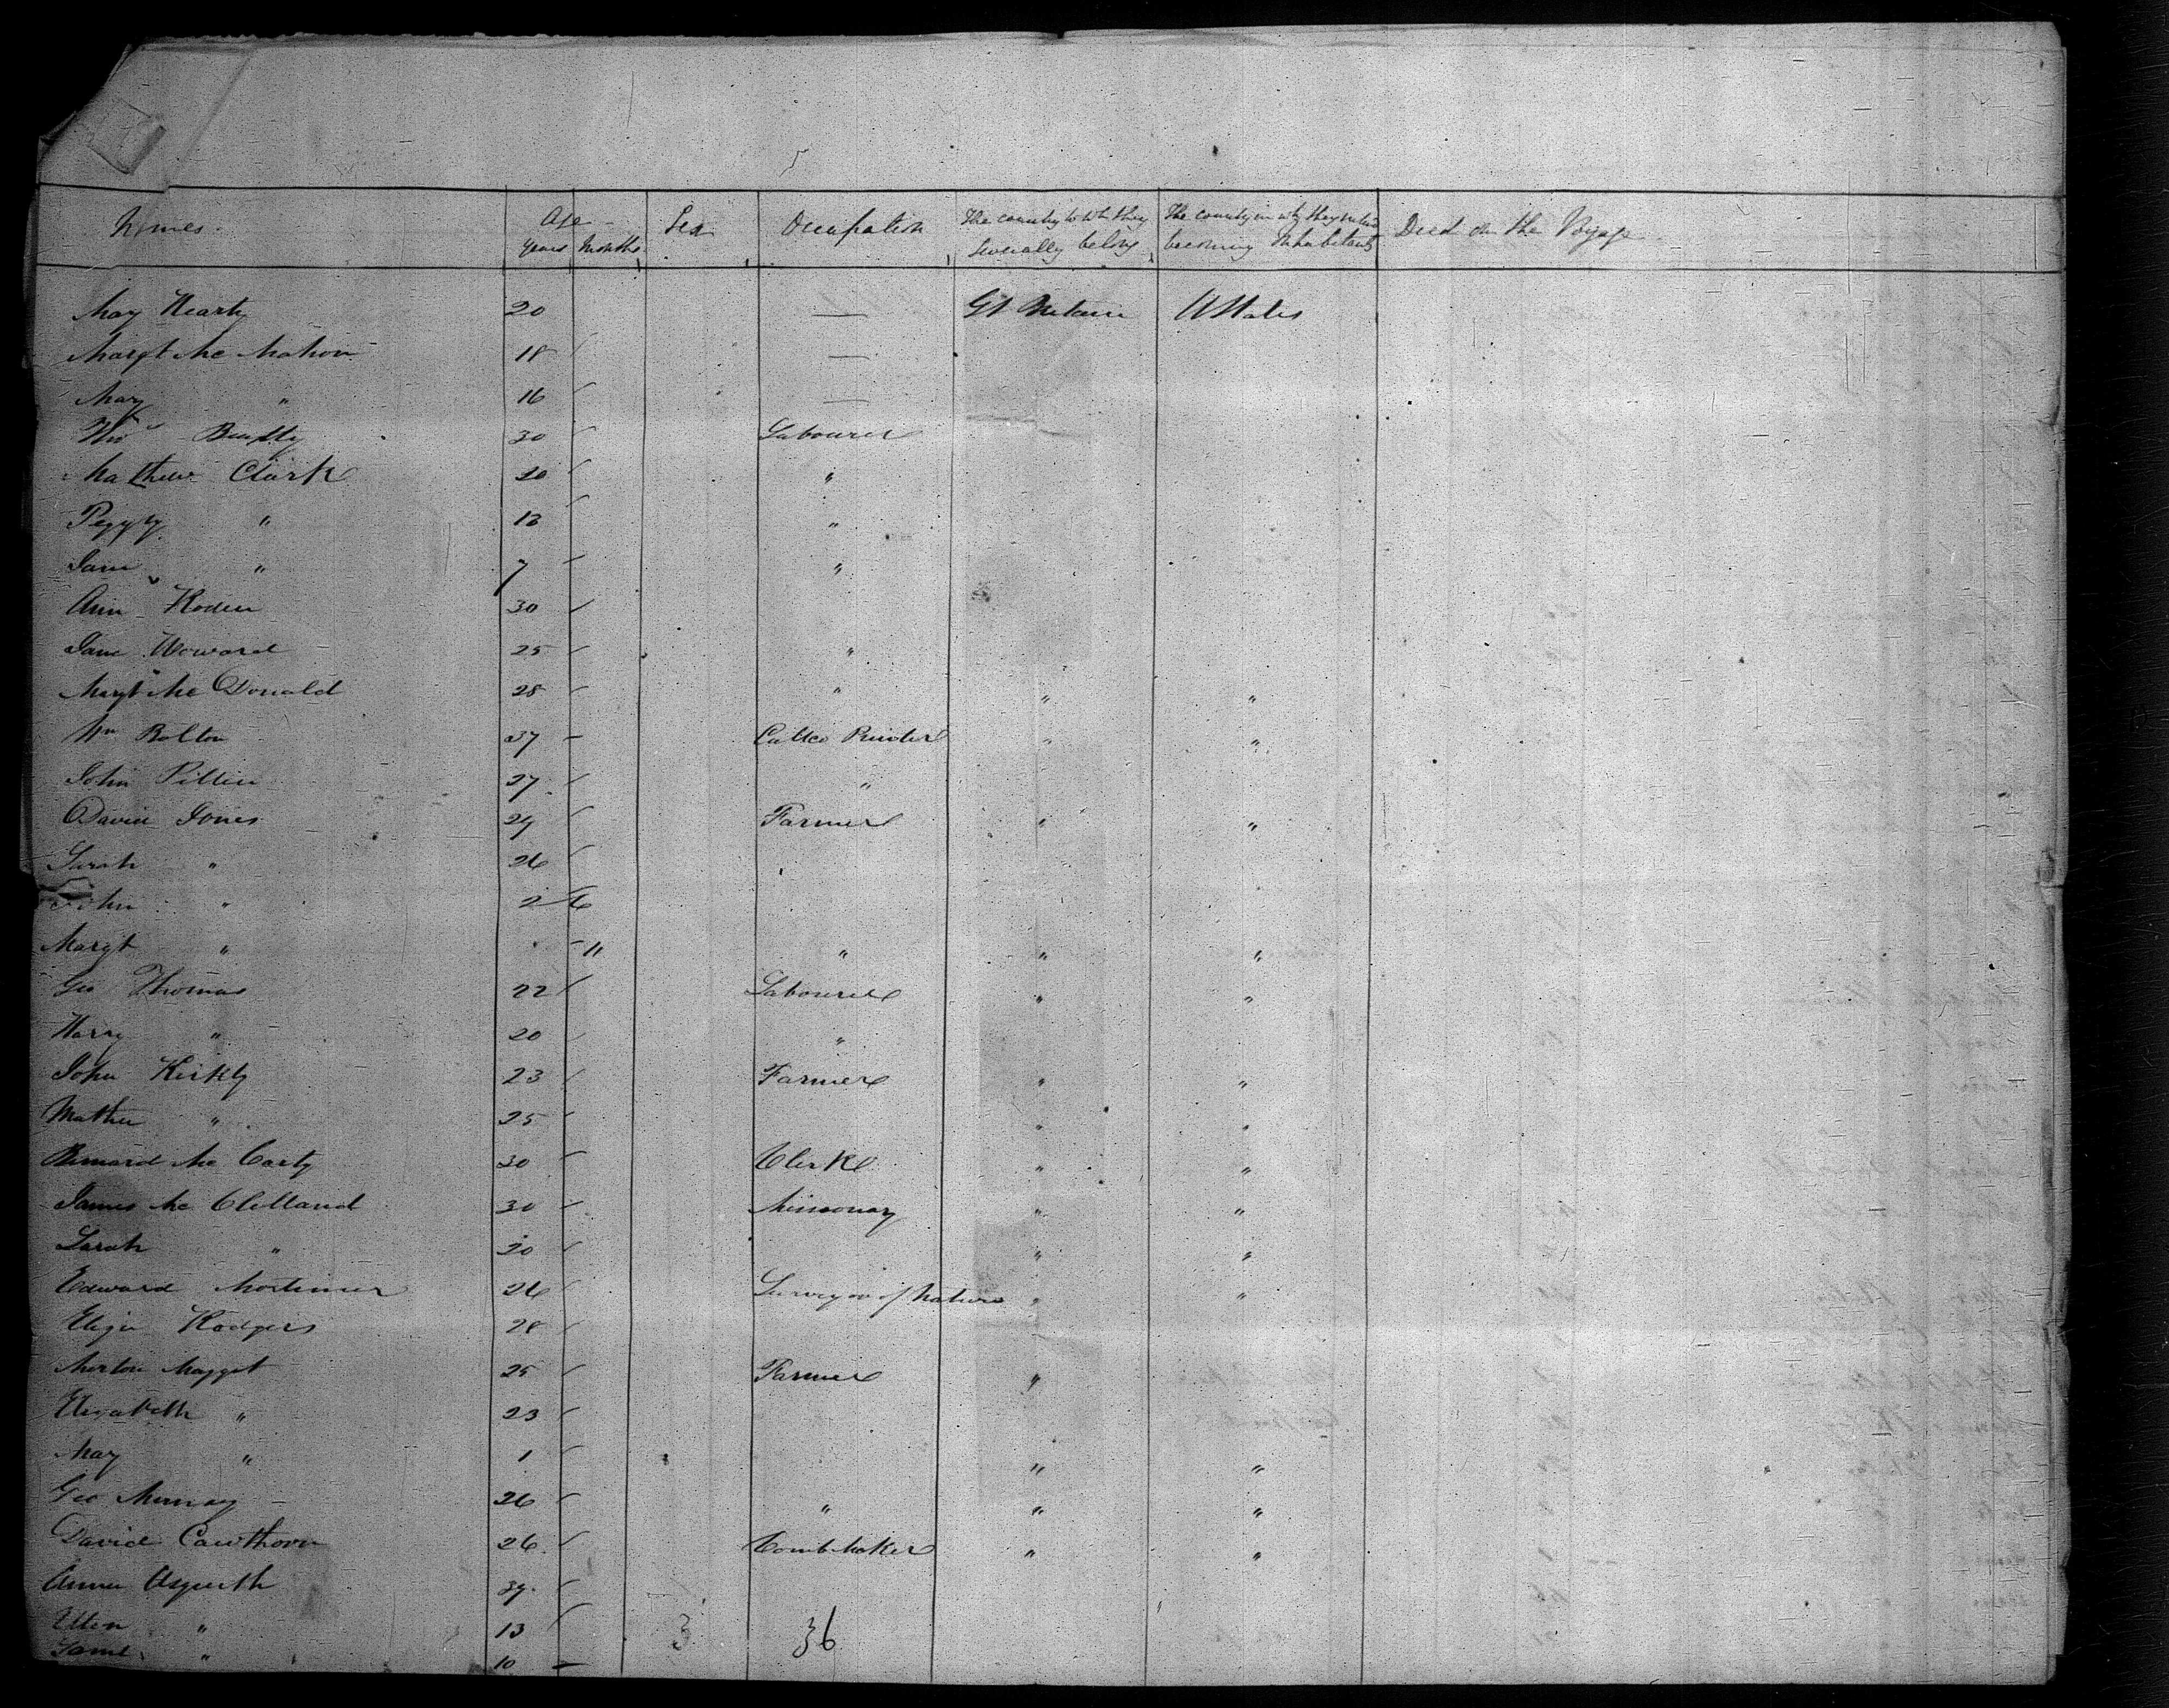 5
Names. Age Sex Occupation The country to wh they The country in wh they intend Died on the Voyage
Years Months severally belong becoming Inhabitants
May Hearty 20 — Gt Britain U States
Margt Mc Mahon 18 —
Mary " 16 —
30 Labourer
Mathew Clark 20 "
Peggy " 13 "
Jane " 7 "
Ann Roden 30
Jane Howard 25 "
Margt Mc Donald 28 " " "
Wm Bolton 37 Calico Printer " "
John Pillin 27 "
David Jones 29 Farmer " "
Sarah " 26
John " 2 6
Margt " 11 " " "
Geo Thomas 22 Labourer " "
Harry " 20 "
John Kirkly 23 Farmer " "
Mathew " 25 " "
Bernard Mc Carty 30 Clerk " "
James Mc Clelland 30 Missonary " "
Sarah " 30 " "
Edward Mortimer 26 Surveyor of Nature " "
Eliza Rodgers 28
Morton Magget 25 Farmer "
Elizabeth " 23
May " 1 " "
Geo Murray 26 " " "
David Cawthorn 26 Comb Maker " "
Anna Asquith 39
Ellen " 13 3 36
Saml " 10